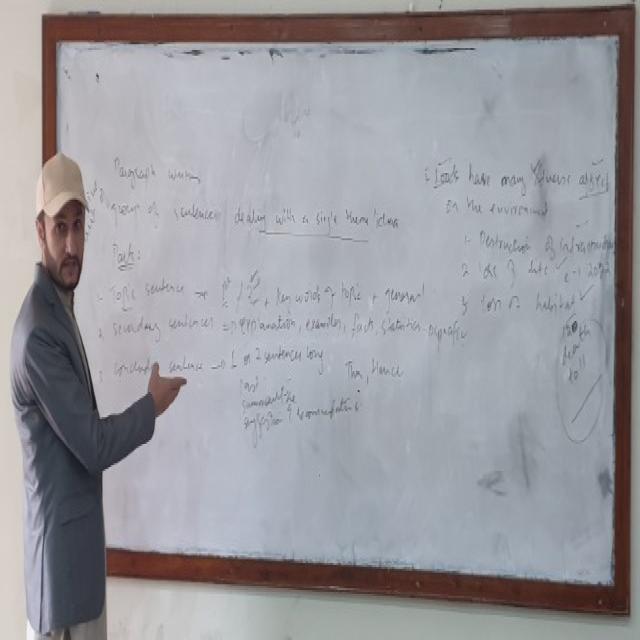 Paragraph writing
group of sentences dealing with a single theme/idea
Parts:
1. Topic sentence → key words topic + general
2. secondary sentences ⇒ explanation, examples, facts, statistics
3 sentence → 1 or 2 sentences long Thus, Hence
summarize
suggestion
Floods have many adverse effects
on the environment
1. Destruction of infrastructure
2 loss of
3 loss of habitat ✓
death
toll